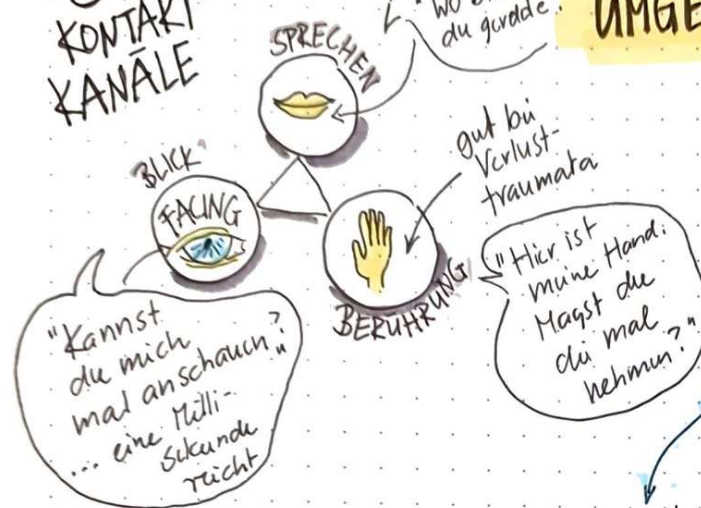 KONTAKT
KANÄLE
SPRECHEN
du gerade
UMGE
BLICK
FACING
gut bei
Verlust-
traumata
BERÜHRUNG
"Hier ist
meine Hand.
Magst du
die mal
nehmen?"
"Kannst
du mich
mal anschauen?"
... eine Milli-
sekunde
reicht